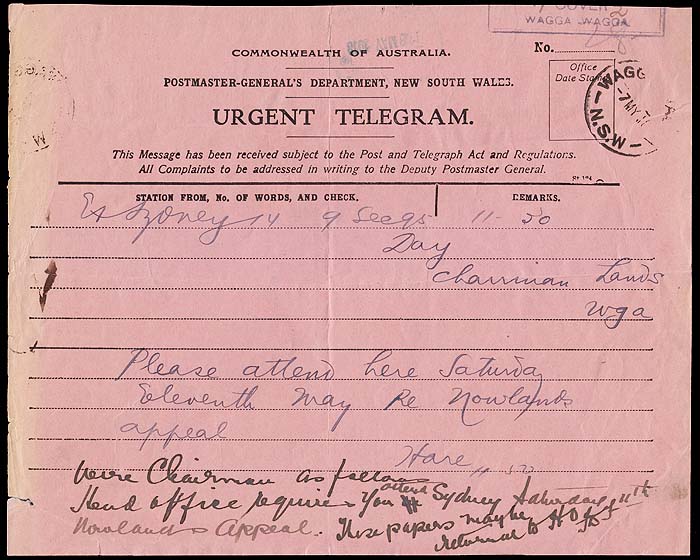 WAGGA WAGGA
COMMONWEALTH OF AUSTRALIA.
No.
POSTMASTER-GENERAL'S DEPARTMENT, NEW SOUTH WALES.
Office
Date Stamp
WAGG
7 MY
N.S.W
URGENT TELEGRAM.
This Message has been received subject to the Post and Telegraph Act and Regulations.
All Complaints to be addressed in writing to the Deputy Postmaster General.
STATION FROM, No. OF WORDS, AND CHECK.
REMARKS.
Ex Sydney 14 9 11-50
Day
Chairman Lands
Wga
Please attend here Saturday
Eleventh May Re Nowlands
appeal
Hare 50
Wire Chairman as follows
Head office require you attend Sydney Saturday 11th
Nowlands Appeal. These papers may be
returned to H O